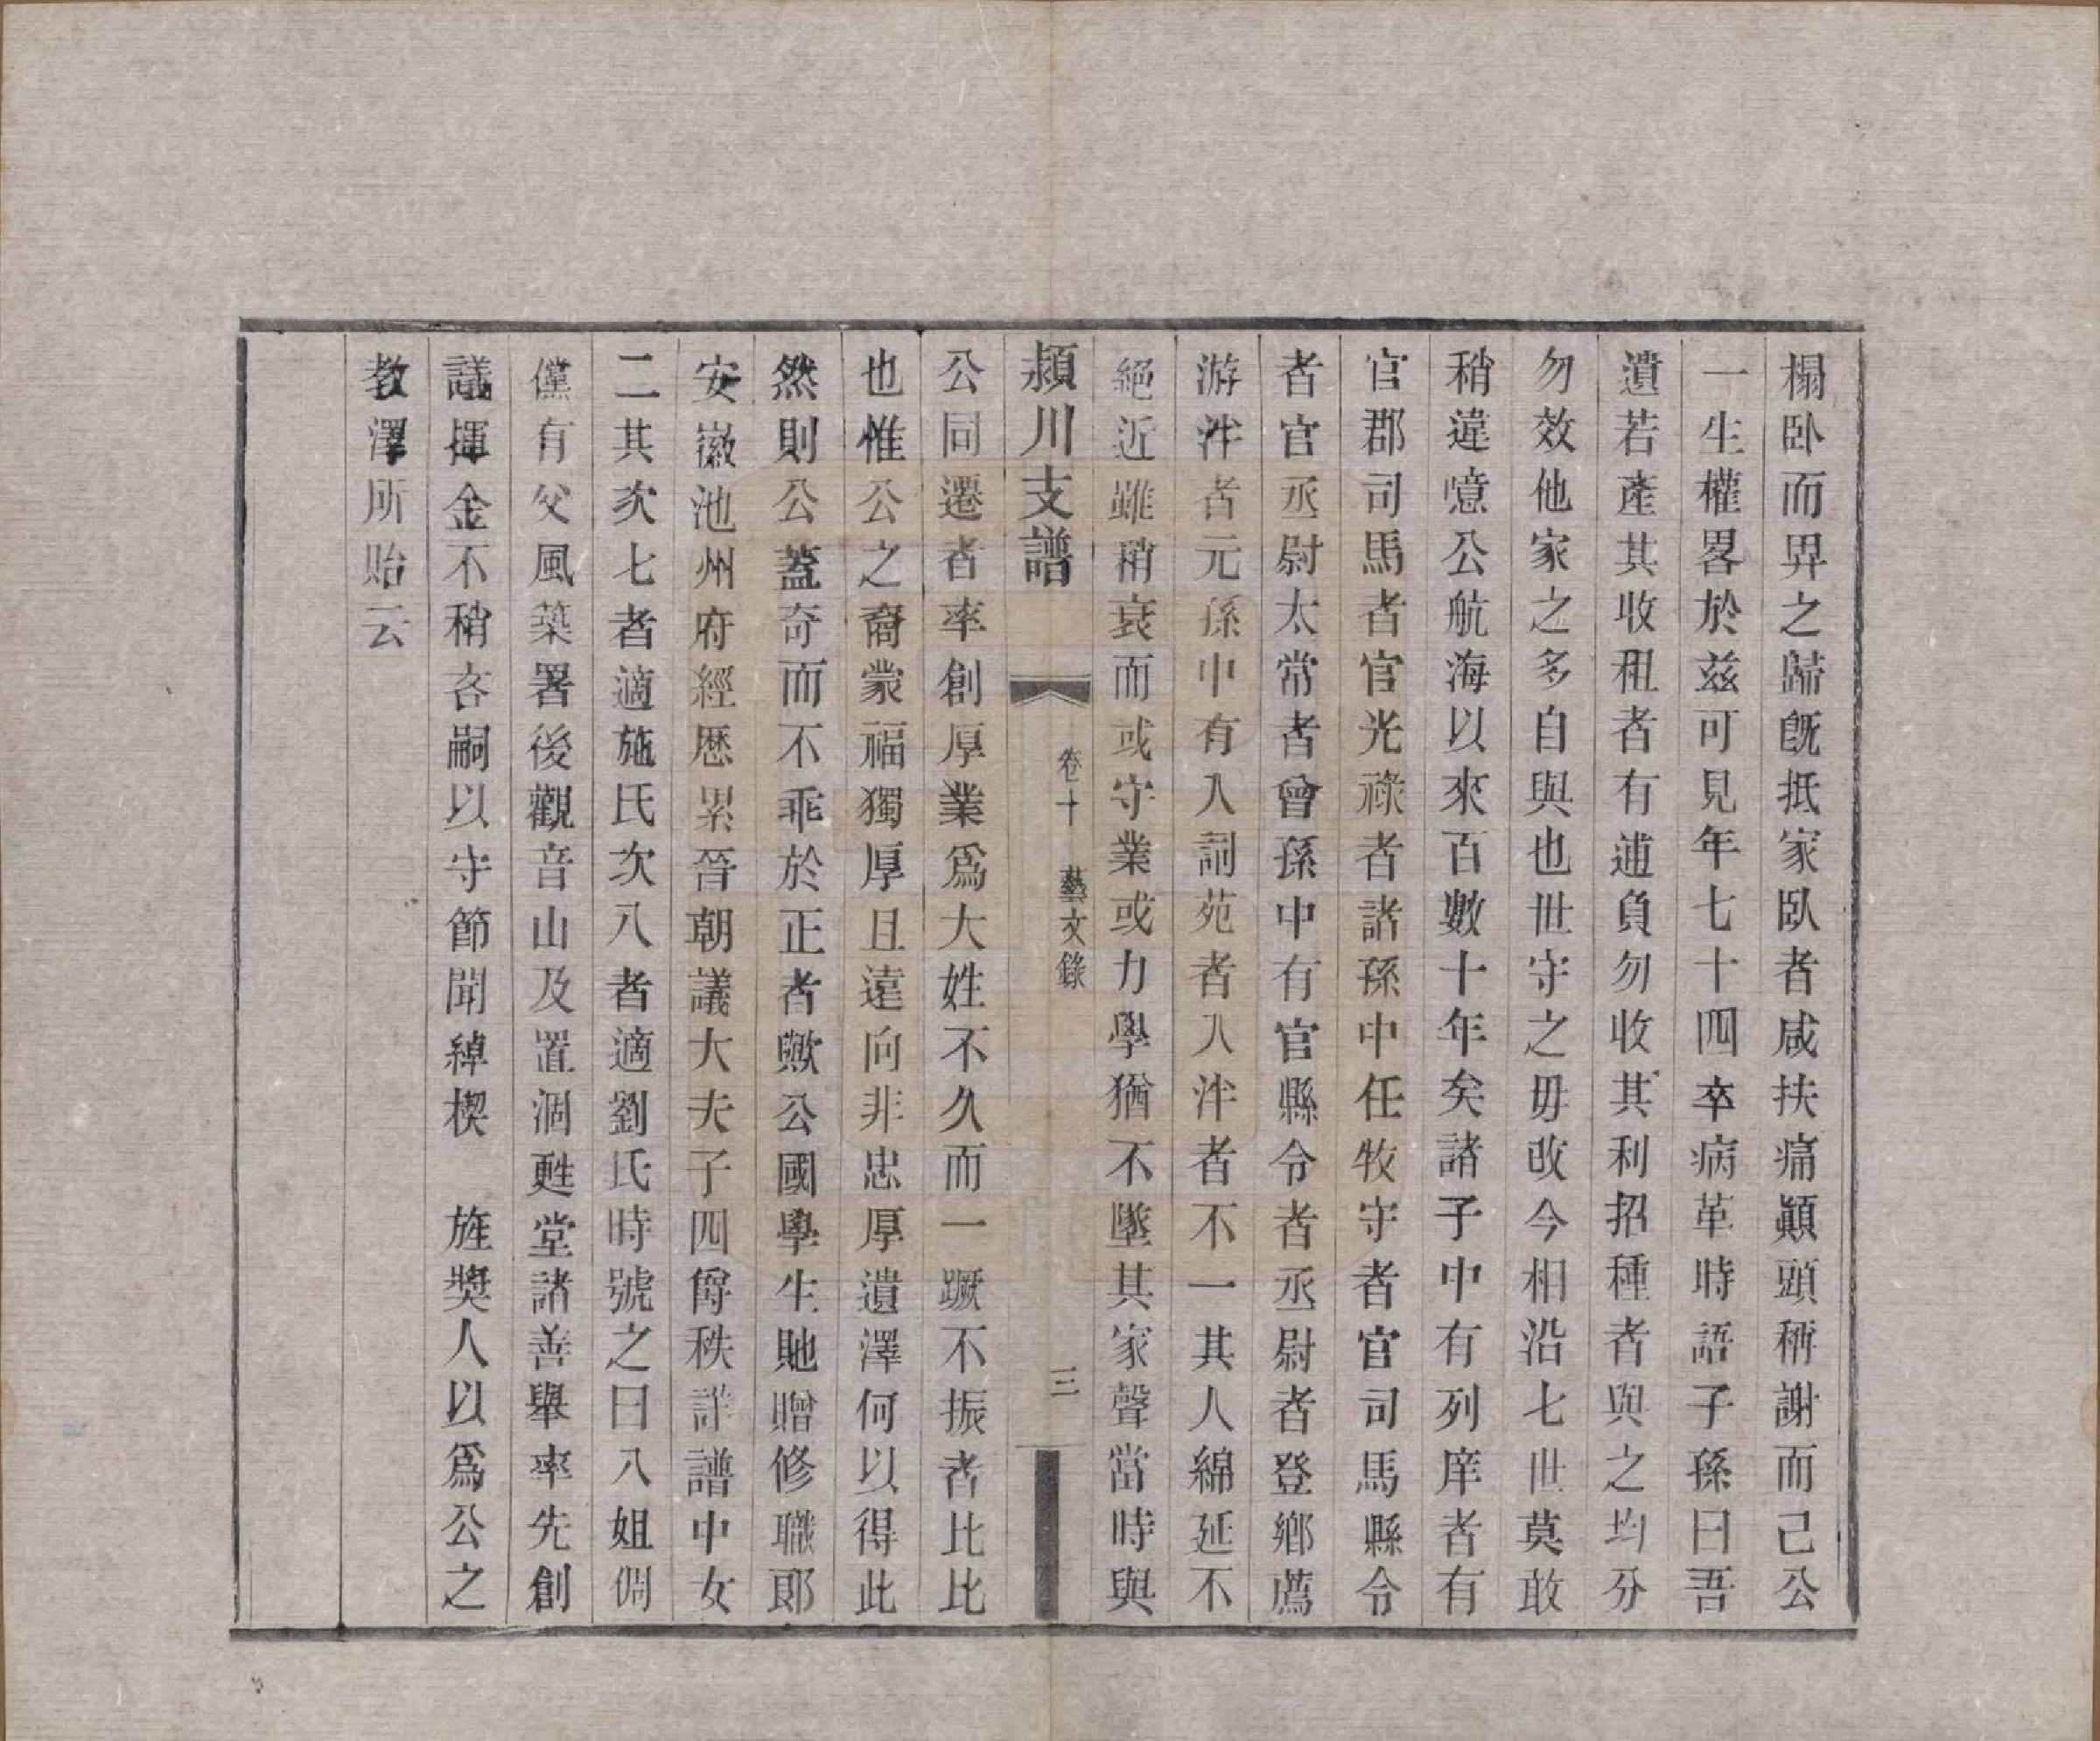 榻卧而畀之歸旣抵家臥者咸扶痛顚頭稱謝而已公
一生權畧於兹可見年七十四卒病革時語子孫曰吾
遺若產其收租者有逋負勿收其利招種者與之均分
勿效他家之多自與也世守之毋改今相沿七世莫敢
稍違憶公航海以來百數十年矣諸子中有列庠者有
官郡司馬者官光祿者諸孫中任牧守者官司馬縣令
者官丞尉太常者曾孫中有官縣令者丞尉者登鄉薦
游泮者元孫中有入詞苑者入泮者不一其人綿延不
絕近雖稍衰而或守業或力學猶不墜其家聲當時與
潁川支譜 卷十 藝文錄 三
公同遷者率創厚業爲大姓不久而一蹶不振者比比
也惟公之裔蒙福獨厚且遠向非忠厚遺澤何以得此
然則公蓋奇而不乖於正者歟公國學生貤贈修職郎
安徽池州府經歷累晉朝議大夫子四爵秩詳譜中女
二其次七者適施氏次八者適劉氏時號之曰八姐倜
儻有父風築署後觀音山及置涸甦堂諸善舉率先創
議揮金不稍吝嗣以守節聞綽楔 旌獎人以爲公之
教澤所貽云